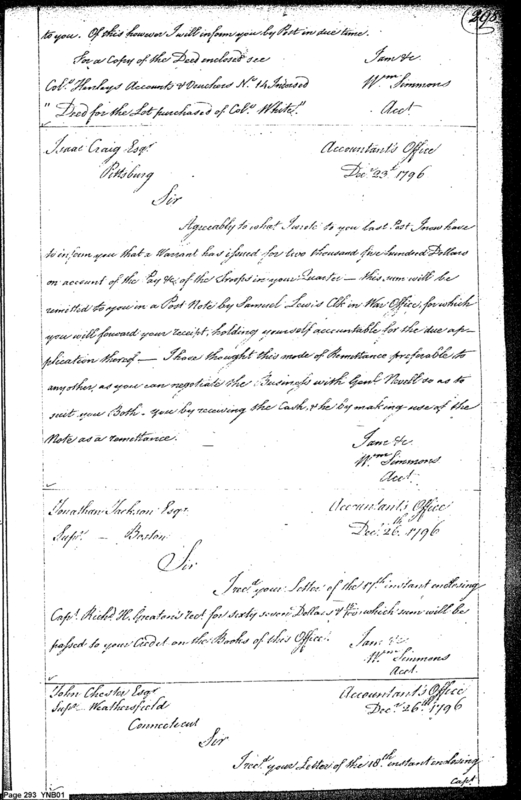 295
to you. Of this however I will inform you by Post in due time.
For a Copy of the Deed enclosed see
I am &c
Colo. Henleys Accounts & Vouchers No. 14 Inclosed
Wm Simmons
" Deed for the Lot purchased of Colo. White "
Acct
Isaac Craig Esqr
Accountant's Office
Pittsburg
Decr 23d 1796
Sir
Agreeably to what I wrote to you last Post I now have
to inform you that a Warrant has issued for two thousand five hundred Dollars
on account of the Pay &c of the Troops in your Quarter — this sum will be
remitted to you in a Post Note by Samuel Lewis Clk in War Office, for which
you will foward your receipt, holding yourself accountable for the due ap-
plication thereof — I have thought this mode of Remittance preferable to
any other, as you can negotiate the Business with Genl Nevell so as to
suit you Both. you by receiving the Cash, & he by making use of the
Note as a remittance.
I am &c
Wm Simmons
Acct
Jonathan Jackson Esqr
Accountant's Office
Supr — Boston
Decr 26th 1796
Sir
I recd your Letter of the 17th instant enclosing
Capt Richd H. Greaton's rect for sixty seven Dollars & which sum will be
passed to your Credit on the Books of this Office.
I am &c
Wm Simmons
Acct
John Chester Esqr
Accountant's Office
Supr Weathersfield
Decr 26th 1796
Connecticut
Sir
I recd your Letter of the 18th instant enclosing
Capt
Page 293 YNB01